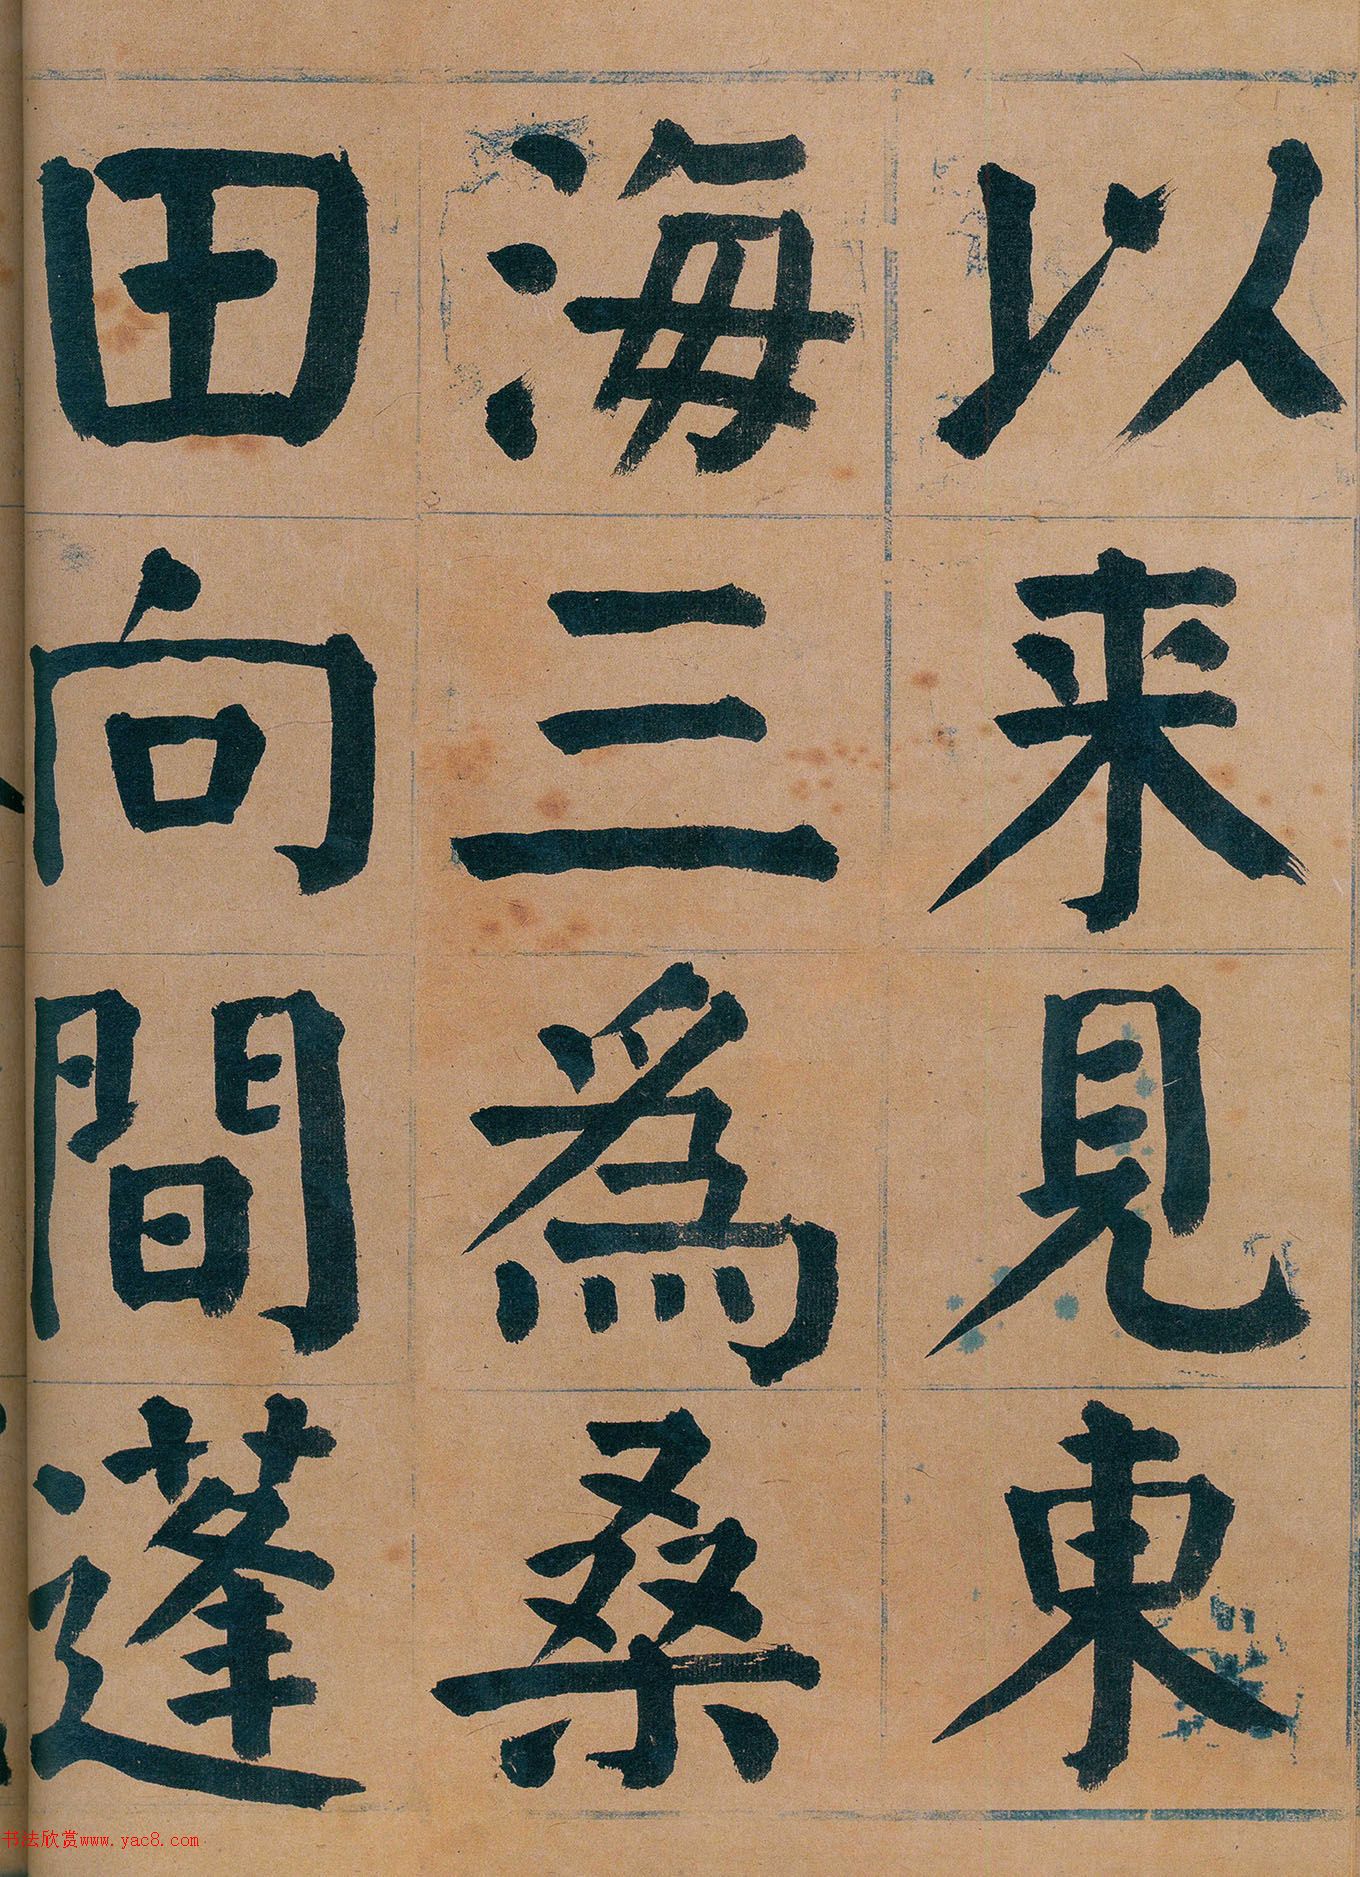 以来見東
海三為桑
田向間蓬
书法欣赏www.yac8.com